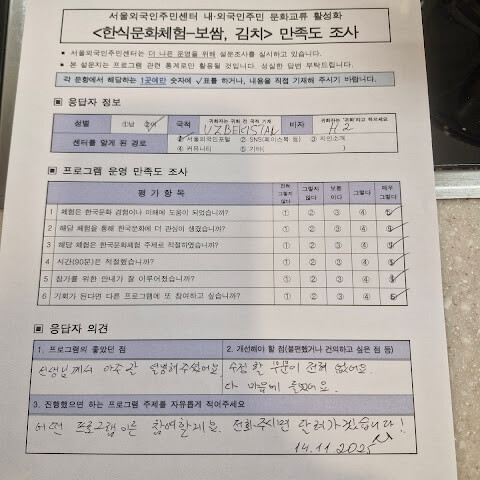 서울외국인주민센터 내·외국인주민 문화교류 활성화
<한식문화체험-보쌈, 김치> 만족도 조사
● 서울외국인주민센터는 더 나은 운영을 위해 설문조사를 실시하고 있습니다.
● 본 설문지는 프로그램 관련 통계로만 활용될 것입니다. 성실한 답변 부탁드립니다.
각 문항에서 해당하는 1곳에만 숫자에 ✓표를 하거나, 내용을 직접 기재해 주시기 바랍니다.
▣ 응답자 정보
성별 ①남 ②여 국적 귀화자는 귀화 전 국적 기재 UZBEKISTAN 비자 귀화자는 '귀화'라고 적으세요 H2
센터를 알게 된 경로 ① 서울외국인포털 ② SNS(페이스북 등) ③ 지인소개
④ 커뮤니티 ⑤ 기타( )
▣ 프로그램 운영 만족도 조사
평가항목 전혀 그렇지 않다 그렇지 않다 보통이다 그렇다 매우 그렇다
1 체험은 한국문화 경험이나 이해에 도움이 되었습니까? ① ② ③ ④ ⑤
2 해당 체험을 통해 한국문화에 더 관심이 생겼습니까? ① ② ③ ④ ⑤
3 해당 체험은 한국문화체험 주제로 적절하였습니까? ① ② ③ ④ ⑤
4 시간(90분)은 적절했습니까? ① ② ③ ④ ⑤
5 참가를 위한 안내가 잘 이루어졌습니까? ① ② ③ ④ ⑤
6 기회가 된다면 다른 프로그램에 또 참여하고 싶습니까? ① ② ③ ④ ⑤
▣ 응답자 의견
1. 프로그램의 좋았던 점
선생님께서 아주 잘 설명해주셨어요
2. 개선해야 할 점(불편했거나 건의하고 싶은 점 등)
수정 할 부분이 전혀 없어요.
다 마음에 들었어요.
3. 진행했으면 하는 프로그램 주제를 자유롭게 적어주세요
어떤 프로그램이든 참여할게요. 전화주시면 달려가겠습니다!
14.11.2025